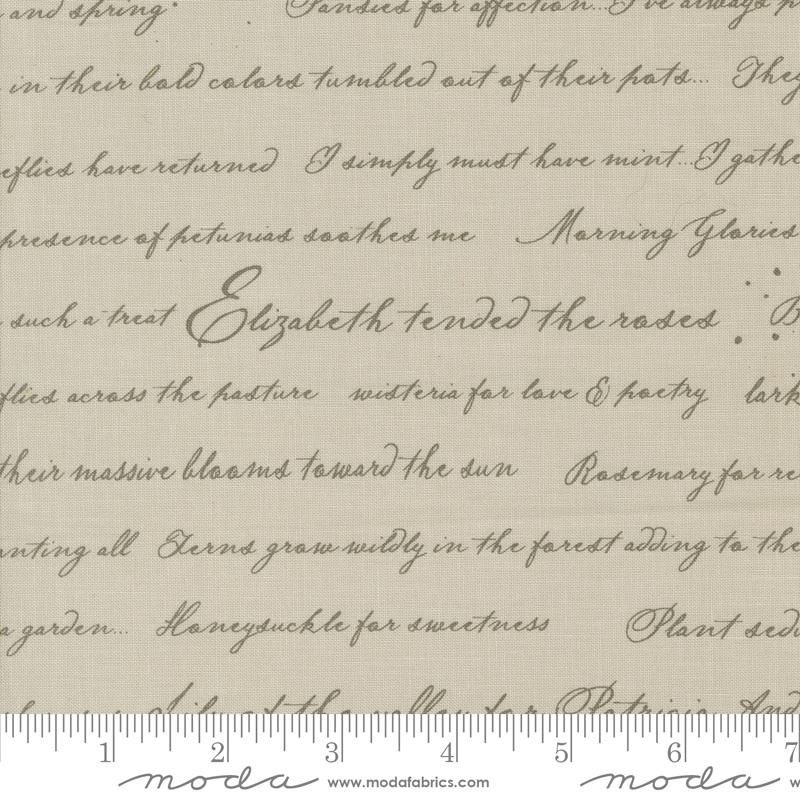 and spring Pansies for affection...I've always p
in their bold colors tumbled out of their pots... They
eflies have returned I simply must have mint...I gathe
presence of petunias soothes me Morning Glories
such a treat Elizabeth tended the roses B
flies across the pasture wisteria for love & poetry lark
their massive blooms toward the sun Rosemary for re
anting all Ferns grow wildly in the forest adding to the
a garden... Honeysuckle for sweetness Plant sedu
Lily of the valley for Patricia And
1 2 3 4 5 6 7
moda www.modafabrics.com moda w